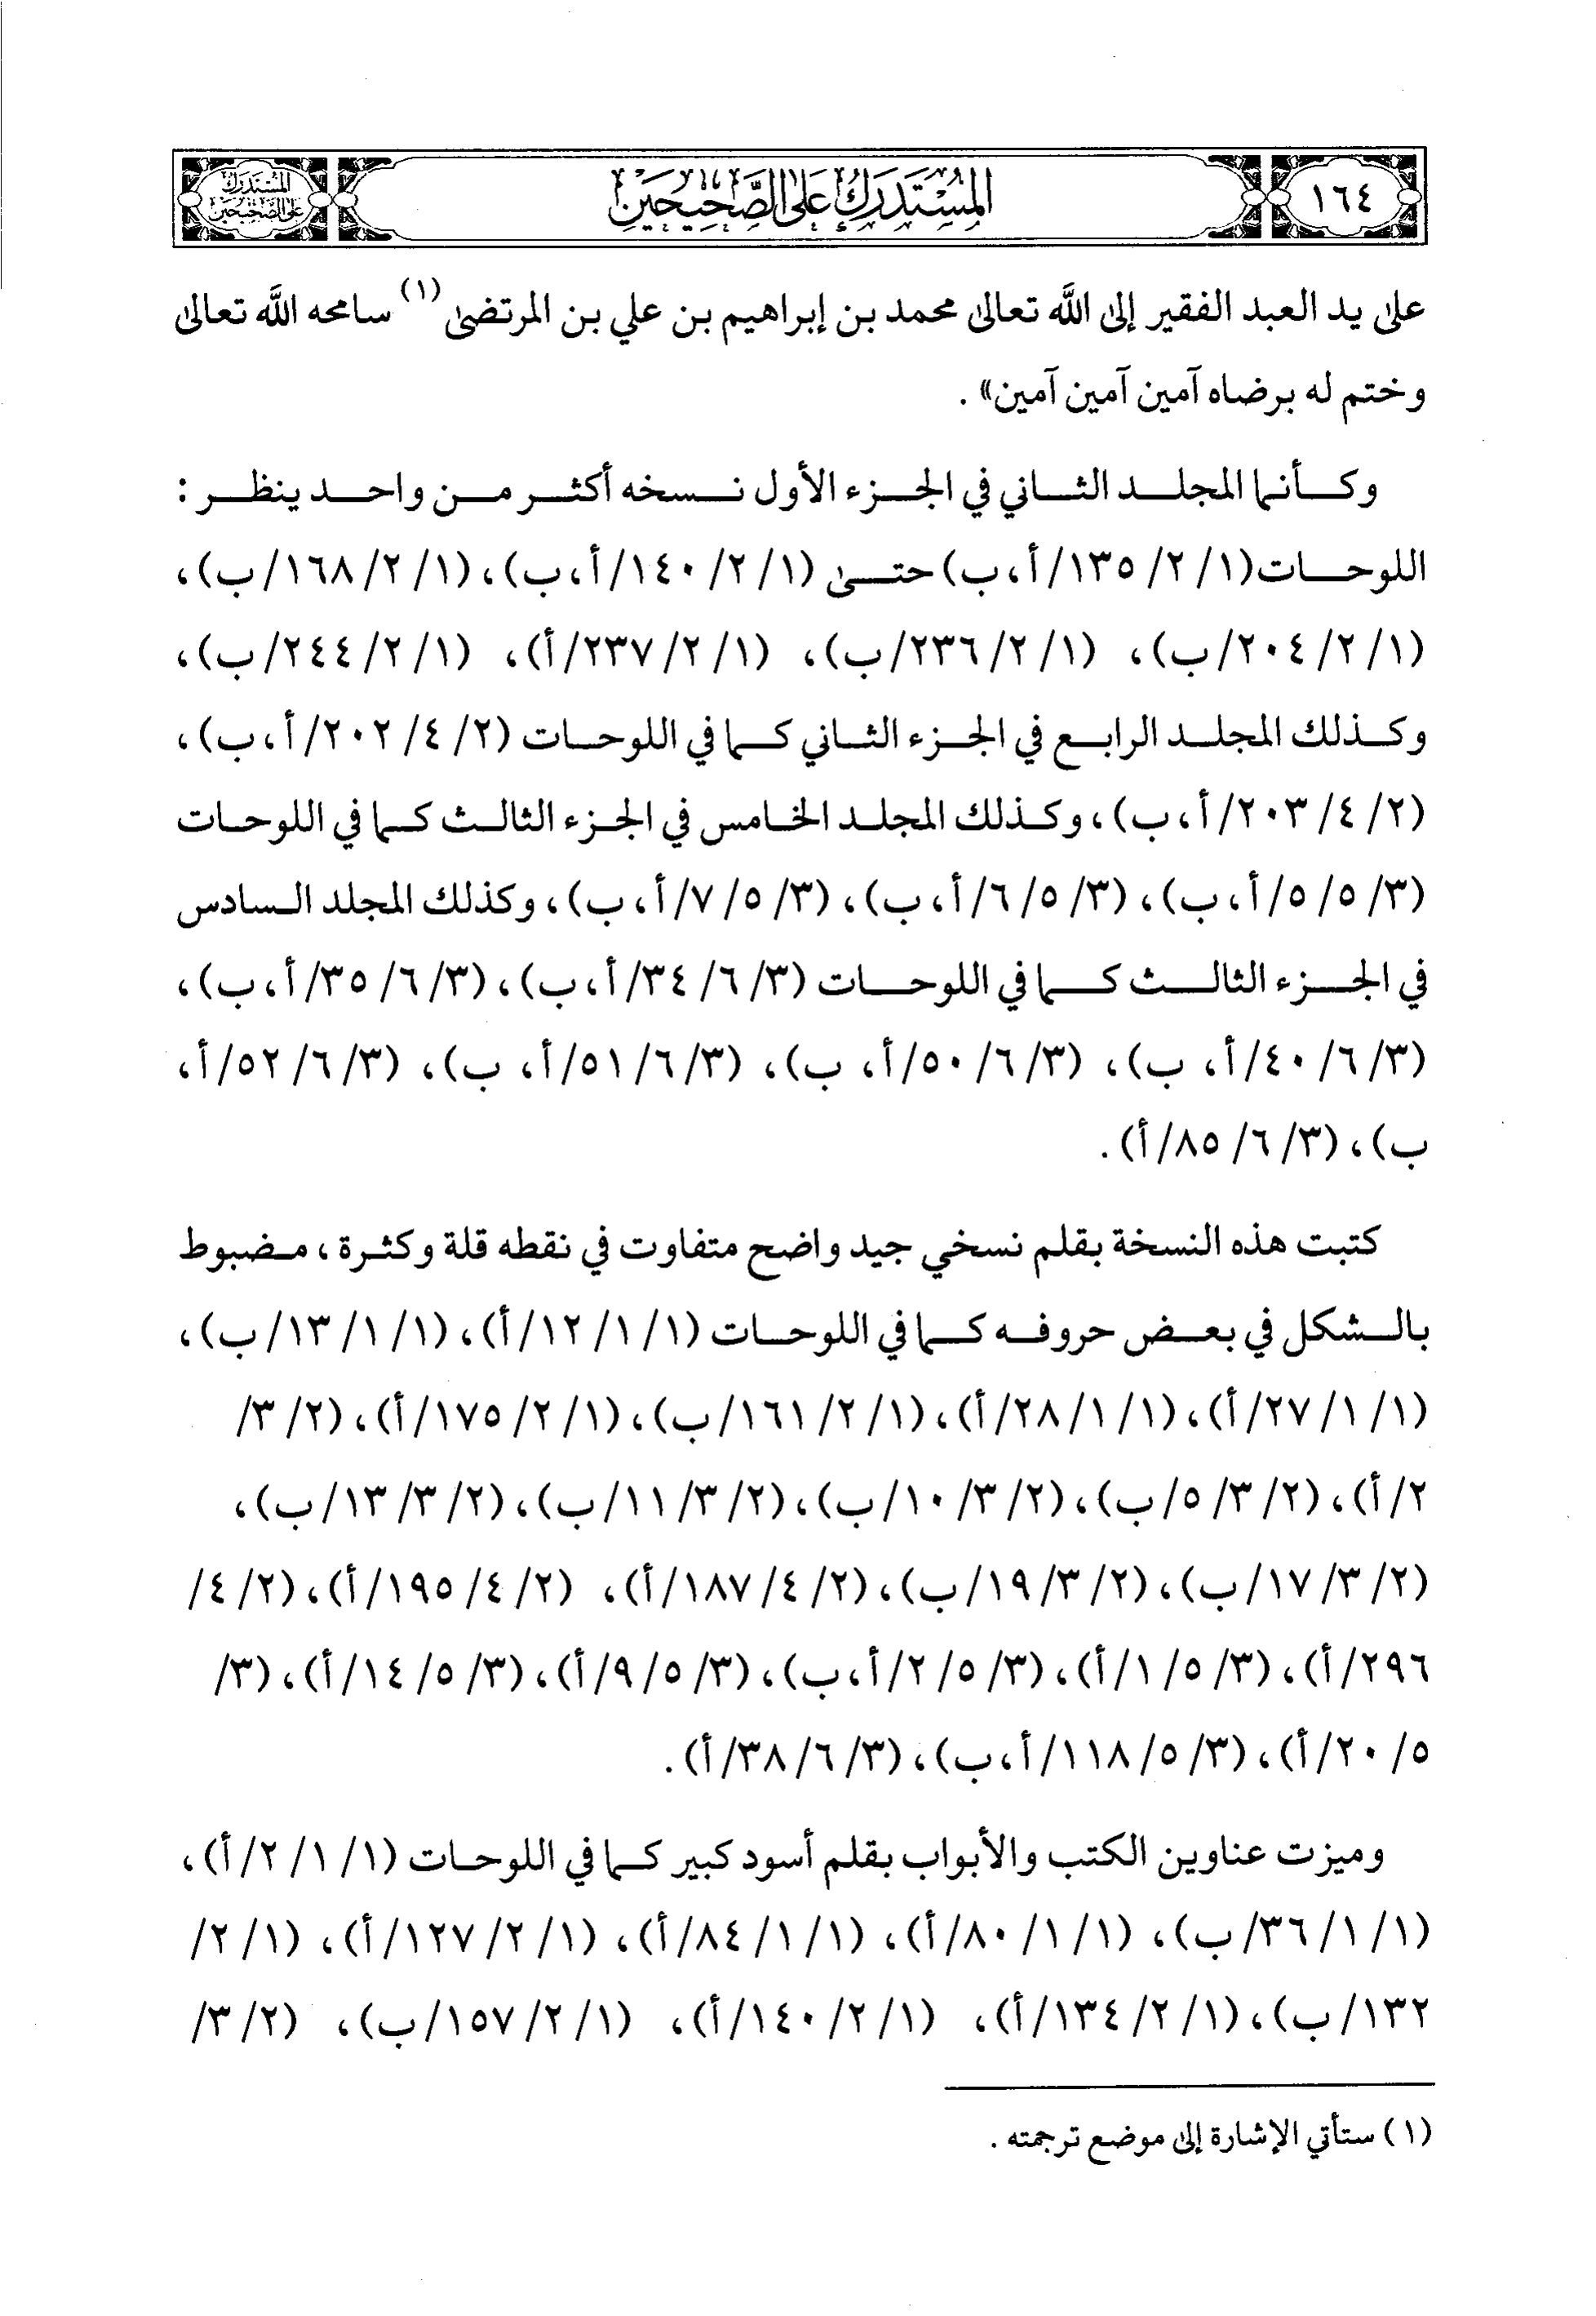 ١٦٤
المُسْتَدْرَكُ عَلَى الصَّحِيحَيْنِ
المُسْتَدْرَكُ
عَلَى الصَّحِيحَيْنِ
على يد العبد الفقير إلى الله تعالى محمد بن إبراهيم بن علي بن المرتضى(١) سامحه الله تعالى
وختم له برضاه آمين آمين آمين» .
وكأنما المجلد الثاني في الجزء الأول نسخه أكثر من واحد ينظر :
اللوحات (١/ ٢/ ١٣٥/ أ، ب) حتى (١/ ٢/ ١٤٠/ أ، ب)، (١/ ٢/ ١٦٨/ ب)،
(١/ ٢/ ٢٠٤/ ب)، (١/ ٢/ ٢٣٦/ ب)، (١/ ٢/ ٢٣٧/ أ)، (١/ ٢/ ٢٤٤/ ب)،
وكذلك المجلد الرابع في الجزء الثاني كما في اللوحات (٢/ ٤/ ٢٠٢/ أ، ب)،
(٢/ ٤/ ٢٠٣/ أ، ب)، وكذلك المجلد الخامس في الجزء الثالث كما في اللوحات
(٣/ ٥/ ٥/ أ، ب)، (٣/ ٥/ ٦/ أ، ب)، (٣/ ٥/ ٧/ أ، ب)، وكذلك المجلد السادس
في الجزء الثالث كما في اللوحات (٣/ ٦/ ٣٤/ أ، ب)، (٣/ ٦/ ٣٥/ أ، ب)،
(٣/ ٦/ ٤٠/ أ، ب)، (٣/ ٦/ ٥٠/ أ، ب)، (٣/ ٦/ ٥١/ أ، ب)، (٣/ ٦/ ٥٢/ أ،
ب)، (٣/ ٦/ ٨٥/ أ) .
كتبت هذه النسخة بقلم نسخي جيد واضح متفاوت في نقطه قلة وكثرة، مضبوط
بالشكل في بعض حروفه كما في اللوحات (١/ ١/ ١٢/ أ)، (١/ ١/ ١٣/ ب)،
(١/ ١/ ٢٧/ أ)، (١/ ١/ ٢٨/ أ)، (١/ ٢/ ١٦١/ ب)، (١/ ٢/ ١٧٥/ أ)، (٢/ ٣/
٢/ أ)، (٢/ ٣/ ٥/ ب)، (٢/ ٣/ ١٠/ ب)، (٢/ ٣/ ١١/ ب)، (٢/ ٣/ ١٣/ ب)،
(٢/ ٣/ ١٧/ ب)، (٢/ ٣/ ١٩/ ب)، (٢/ ٤/ ١٨٧/ أ)، (٢/ ٤/ ١٩٥/ أ)، (٢/ ٤/
٢٩٦/ أ)، (٣/ ٥/ ١/ أ)، (٣/ ٥/ ٢/ أ، ب)، (٣/ ٥/ ٩/ أ)، (٣/ ٥/ ١٤/ أ)، (٣/
٥/ ٢٠/ أ)، (٣/ ٥/ ١١٨/ أ، ب)، (٣/ ٦/ ٣٨/ أ) .
وميزت عناوين الكتب والأبواب بقلم أسود كبير كما في اللوحات (١/ ١/ ٢/ أ)،
(١/ ١/ ٣٦/ ب)، (١/ ١/ ٨٠/ أ)، (١/ ١/ ٨٤/ أ)، (١/ ٢/ ١٢٧/ أ)، (١/ ٢/
١٣٢/ ب)، (١/ ٢/ ١٣٤/ أ)، (١/ ٢/ ١٤٠/ أ)، (١/ ٢/ ١٥٧/ ب)، (٢/ ٣/
(١) ستأتي الإشارة إلى موضع ترجمته .